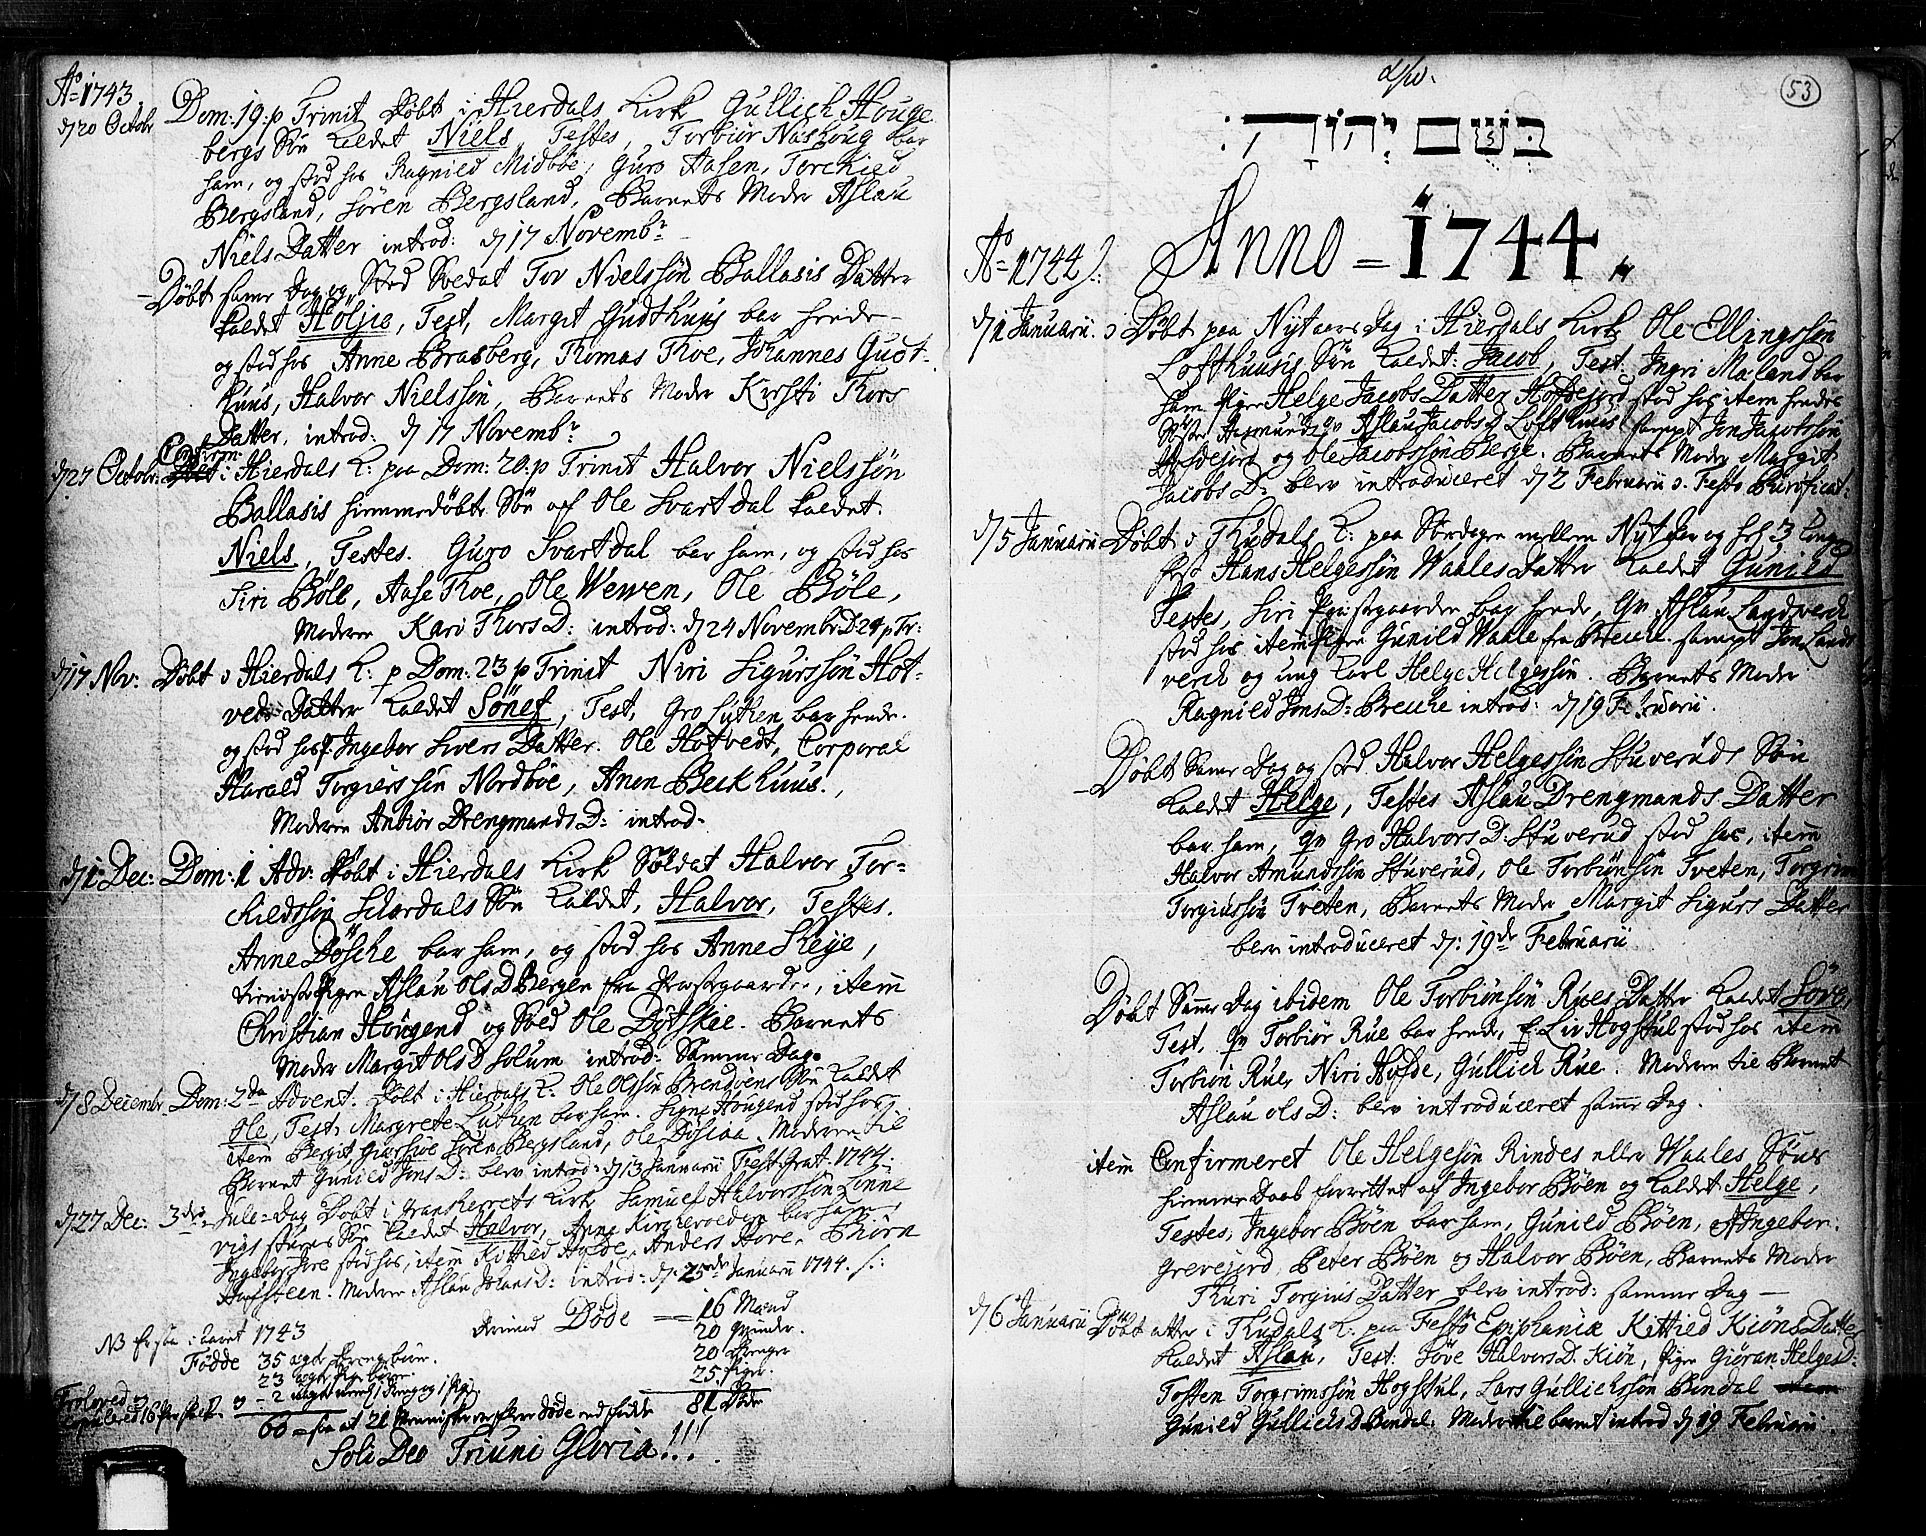 Aō 1743.
d 20 Octobr. Dom: 19. p Trinit Döbt i Hierdals Kirk Gullich Houge
bergs Sön kaldet Niels Testes, Torbiör Naskoug bar
ham, og stod hos Ragnild Midböe, Guro Aasen, Torchild
Bergsland, Sören Bergsland, Barnets Moder Aslau
Niels Datter introd: d 17 Novembr
Döbt samme Dag og Sted Soldat Tov Nielssön Ballasis Datter
kaldet Höljie, Test, Margit Gudthuus bar hende
og stod hos Anne Brasberg, Thomas Thoe, Johannes Gudt-
huus, Halvor Nielssön, Barnets Moder Kirsti Thors
Datter, introd: d 17 Novembr
d 27 Octobr: Confirm: i Hierdals K: paa Dom: 20. p Trinit Halvor Nielssön
Ballasis hiemmedöbte Sön af Ole Svartdal kaldet.
Niels, Testes. Guro Svartdal bar ham, og stod hos
Siri Böle, Aase Thoe, Ole Wewen, Ole Böle,
Moderen Kari Thors D: introd: d 24 Novembr D 24 p Tr:
d 17 Nov: Döbt i Hierdals K: p Dom: 23 p Trinit Niri Sigurssön Hot-
vedts Datter kaldet Sönef, Test, Gro Luthen bar hende.
og stod hos P. Ingebor Sivers Datter. Ole Hotvedt, Corporal
Harald Torgierssön Nordböe, Anon Beckhuus.,
Moderen Anbiör Drengmands D: introd.
d 1 Dec: Dom: 1 Adv: Döbt i Hierdals Kirk Soldat Halvor Tor-
kildssön Schardals Sön kaldet, Halvor, Testes.
Anne Döske bar ham, og stod hos Anne Skeje,
tieniste Pigen Aslau Ols D Bergen fra Præstegaarden, item
Christian Hougend og Sold Ole Dytskie. Barnets
Moder Margit Ols D Solum introd: Samme Dag.
d 8 Decembr. Dom: 2da Advent. Döbt i Hierdals K: Ole Olssön Brendöens Sön kaldet
Ole, Test: Margrete Luthen bar ham. Signe Hougend stod hos
item Bergit Giursröe Sören Bergsland, Ole Döslaa. Moderen til
Barnet Gunild Jons D: blev introd: d 13 Januarii Fest: Grat. 1744.
d 27 Dec: 3die Jule-Dag Döbt i Gransherrets Kirk Samuel Halvorssön Tinne
vigs störens Sön kaldet Halvor, Anne Kirchevolden bar ham
Ingebor Hore stod hos, item Kittild Holde, Anders Hove, Biörn
Hofsteen. Moderen Aslau Johans D: introd: d. 25de Januarii 1744.
NB er saa i Aaret 1743
Födde 35 ægte Drengebörn.
23 ægte Pigebörn.
2 uægte nemlig 1 Dreng og 1 Pige
60 saa at 21 Mennisker er flere döde end fødde
Derimod Döde 16 Mænd
20 Qvinder.
20 Drenger
25. Piger.
81 Döde
Trolovede
Soli Deo Triuni Gloria!!!
53
בְּשֵׁם יְהוָֹה
Anno = 1744.
Aō 1744
d 1 Januarii. Döbt paa Nytaars Dag i Hierdals Kirk Ole Ellingssön
Lofthuusis Sön kaldet: Jacob, Test: Ingri Maland bar
ham Pigen Helge Jacobs Datter Hofdejord stod hos item hendes
Söster Aasmunds Qv Aslau Jacobs D Lofthuus sampt Jon Jacobssön
Hofdejord og Ole Jacobssön Berge. Barnets Moder Margit
Jacobs D: blev introduceret d 2 Februarii Festo Purificat:
d 5 Januarii Döbt i Thudals K: paa Söndagen mellem Nyt Aar og hel 3 Konger
fest Hans Helgessön Waales Datter kaldet Gunild
Testes, Siri Præstgaarden bar hende, Qv Aslau Landverk
stod hos item Pigen Gunild Waale fra Brecke. sampt Jon Land
verk og ung karl Helge Helgessön. Barnets Moder
Ragnild Jons D: Brecke introd: d 19 Februarii.
Döbt Samme Dag og sted Halvor Helgessön Stuveruds Sön
kaldet Helge, Testes Aslau Drengmands Datter
bar ham, Qv Gro Halvors D: Stuverud stod hos, item
Halvor Amundssön Stuverud, Ole Torbiönsön Tveten, Torgrim
Torgiussön Tveten, Barnets Moder Margit Sigurs Datter
blev introduceret d: 19de Februarii
Döbt Samme Dag ibidem Ole Torbiönsön Rues Datter kaldet Söve,
Test, Qv Torbiör Rue bar hende, P: Liv Hogstul stod hos item
Torbiön Rue, Niri Hofde, Gullich Rue. Moderen til Barnet
Aslau Ols D: blev introduceret samme Dag.
item Confirmeret Ole Helgesön Rindes eller Waales Söns
hiemme Daab forrettet af Ingebor Böen og kaldet Helge,
Testes, Ingebor Böen bar ham, Gunild Böen, Ingebor.
Grevejord, Peter Böen og Halvor Böen, Barnets Moder
Thuri Torgius Datter blev introd: samme Dag
d 6 Januarii Döbt atter i Thudals K: paa Festo Epiphaniæ Kittild Kiöns Datter
kaldet Aslau, Test: Söve Halvors D. Kiön, Pigen Giöran Helges D:
Tosten Torgrimssön Hogstul, Lars Gullichssön Bendal
Gunild Gullichs D Bendal. Moderen til barnet introd d 19 Februarii.